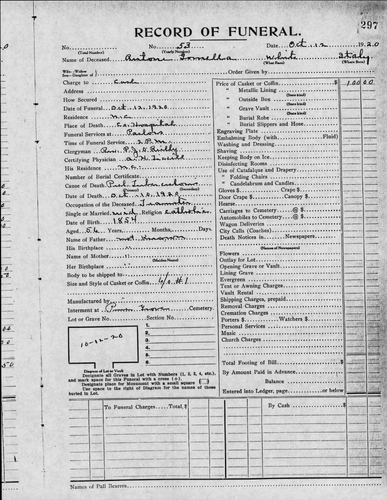 297
RECORD OF FUNERAL.
No. No. 53 Date Oct. 12 1920
(Total Number) (Yearly Number)
Name of Deceased Antone White Italy
(What Race) (Where Born)
Wife—Widow
Son—Daughter of Order Given by
Charge to Cash
Address
How Secured
Date of Funeral Oct. 12, 1920
Residence N.C.
Place of Death Co. Hospital
Funeral Services at Parlors
Time of Funeral Service 2 P.M.
Clergyman Rev. P. J. Reilly
Certifying Physician
His Residence N.C.
Number of Burial Certificate
Cause of Death
Date of Death Oct. 10, 1920
Occupation of the Deceased Teamster
Single or Married Religion Catholic
Date of Birth 1854
Aged 56 Years, Months, Days.
Name of Father not known
His Birthplace
Name of Mother "
Her Birthplace "
Body to be shipped to
Size and Style of Casket or Coffin 6/0 #1
Manufactured by
Interment at Cemetery.
Lot or Grave No. Section No.
10-12-20
1.
2.
3.
4.
5.
6.
Diagram of Lot or Vault
Designate all Graves in Lot with Numbers (1, 2, 3, 4, etc.),
and mark space for this Funeral with a cross (+).
Designate place for Monument with a small square
Use space to right of Diagram for the names of those
buried in Lot.
Price of Casket or Coffin 100 00
" Metallic Lining
(State kind)
" Outside Box
(State kind)
" Grave Vault
(State kind)
" Burial Robe
(State kind)
" Burial Slippers and Hose
Engraving Plate
Embalming Body (with Fluid)
Washing and Dressing
Shaving
Keeping Body on Ice
Disinfecting Rooms
Use of Catafalque and Drapery
" Folding Chairs
" Candelabrum and Candles
Gloves $ Crape $
Door Crape $ Canopy $
Hearse
Carriages to Cemetery @ $
Automobiles to Cemetery @ $
Wagon Deliveries
City Calls (Coaches)
Death Notices in Newspapers
(Names of Newspapers)
Flowers
Outlay for Lot
Opening Grave or Vault
Lining Grave
Evergreen
Tent or Awning Charges
Vault Rental
Shipping Charges, prepaid
Removal Charges
Cremation Charges
Porters $ Watchers $
Personal Services
Music
Church Charges
Total Footing of Bill
By Amount Paid in Advance
Balance
Entered into Ledger, page or below
To Funeral Charges Total, $ By Cash $
Names of Pall Bearers